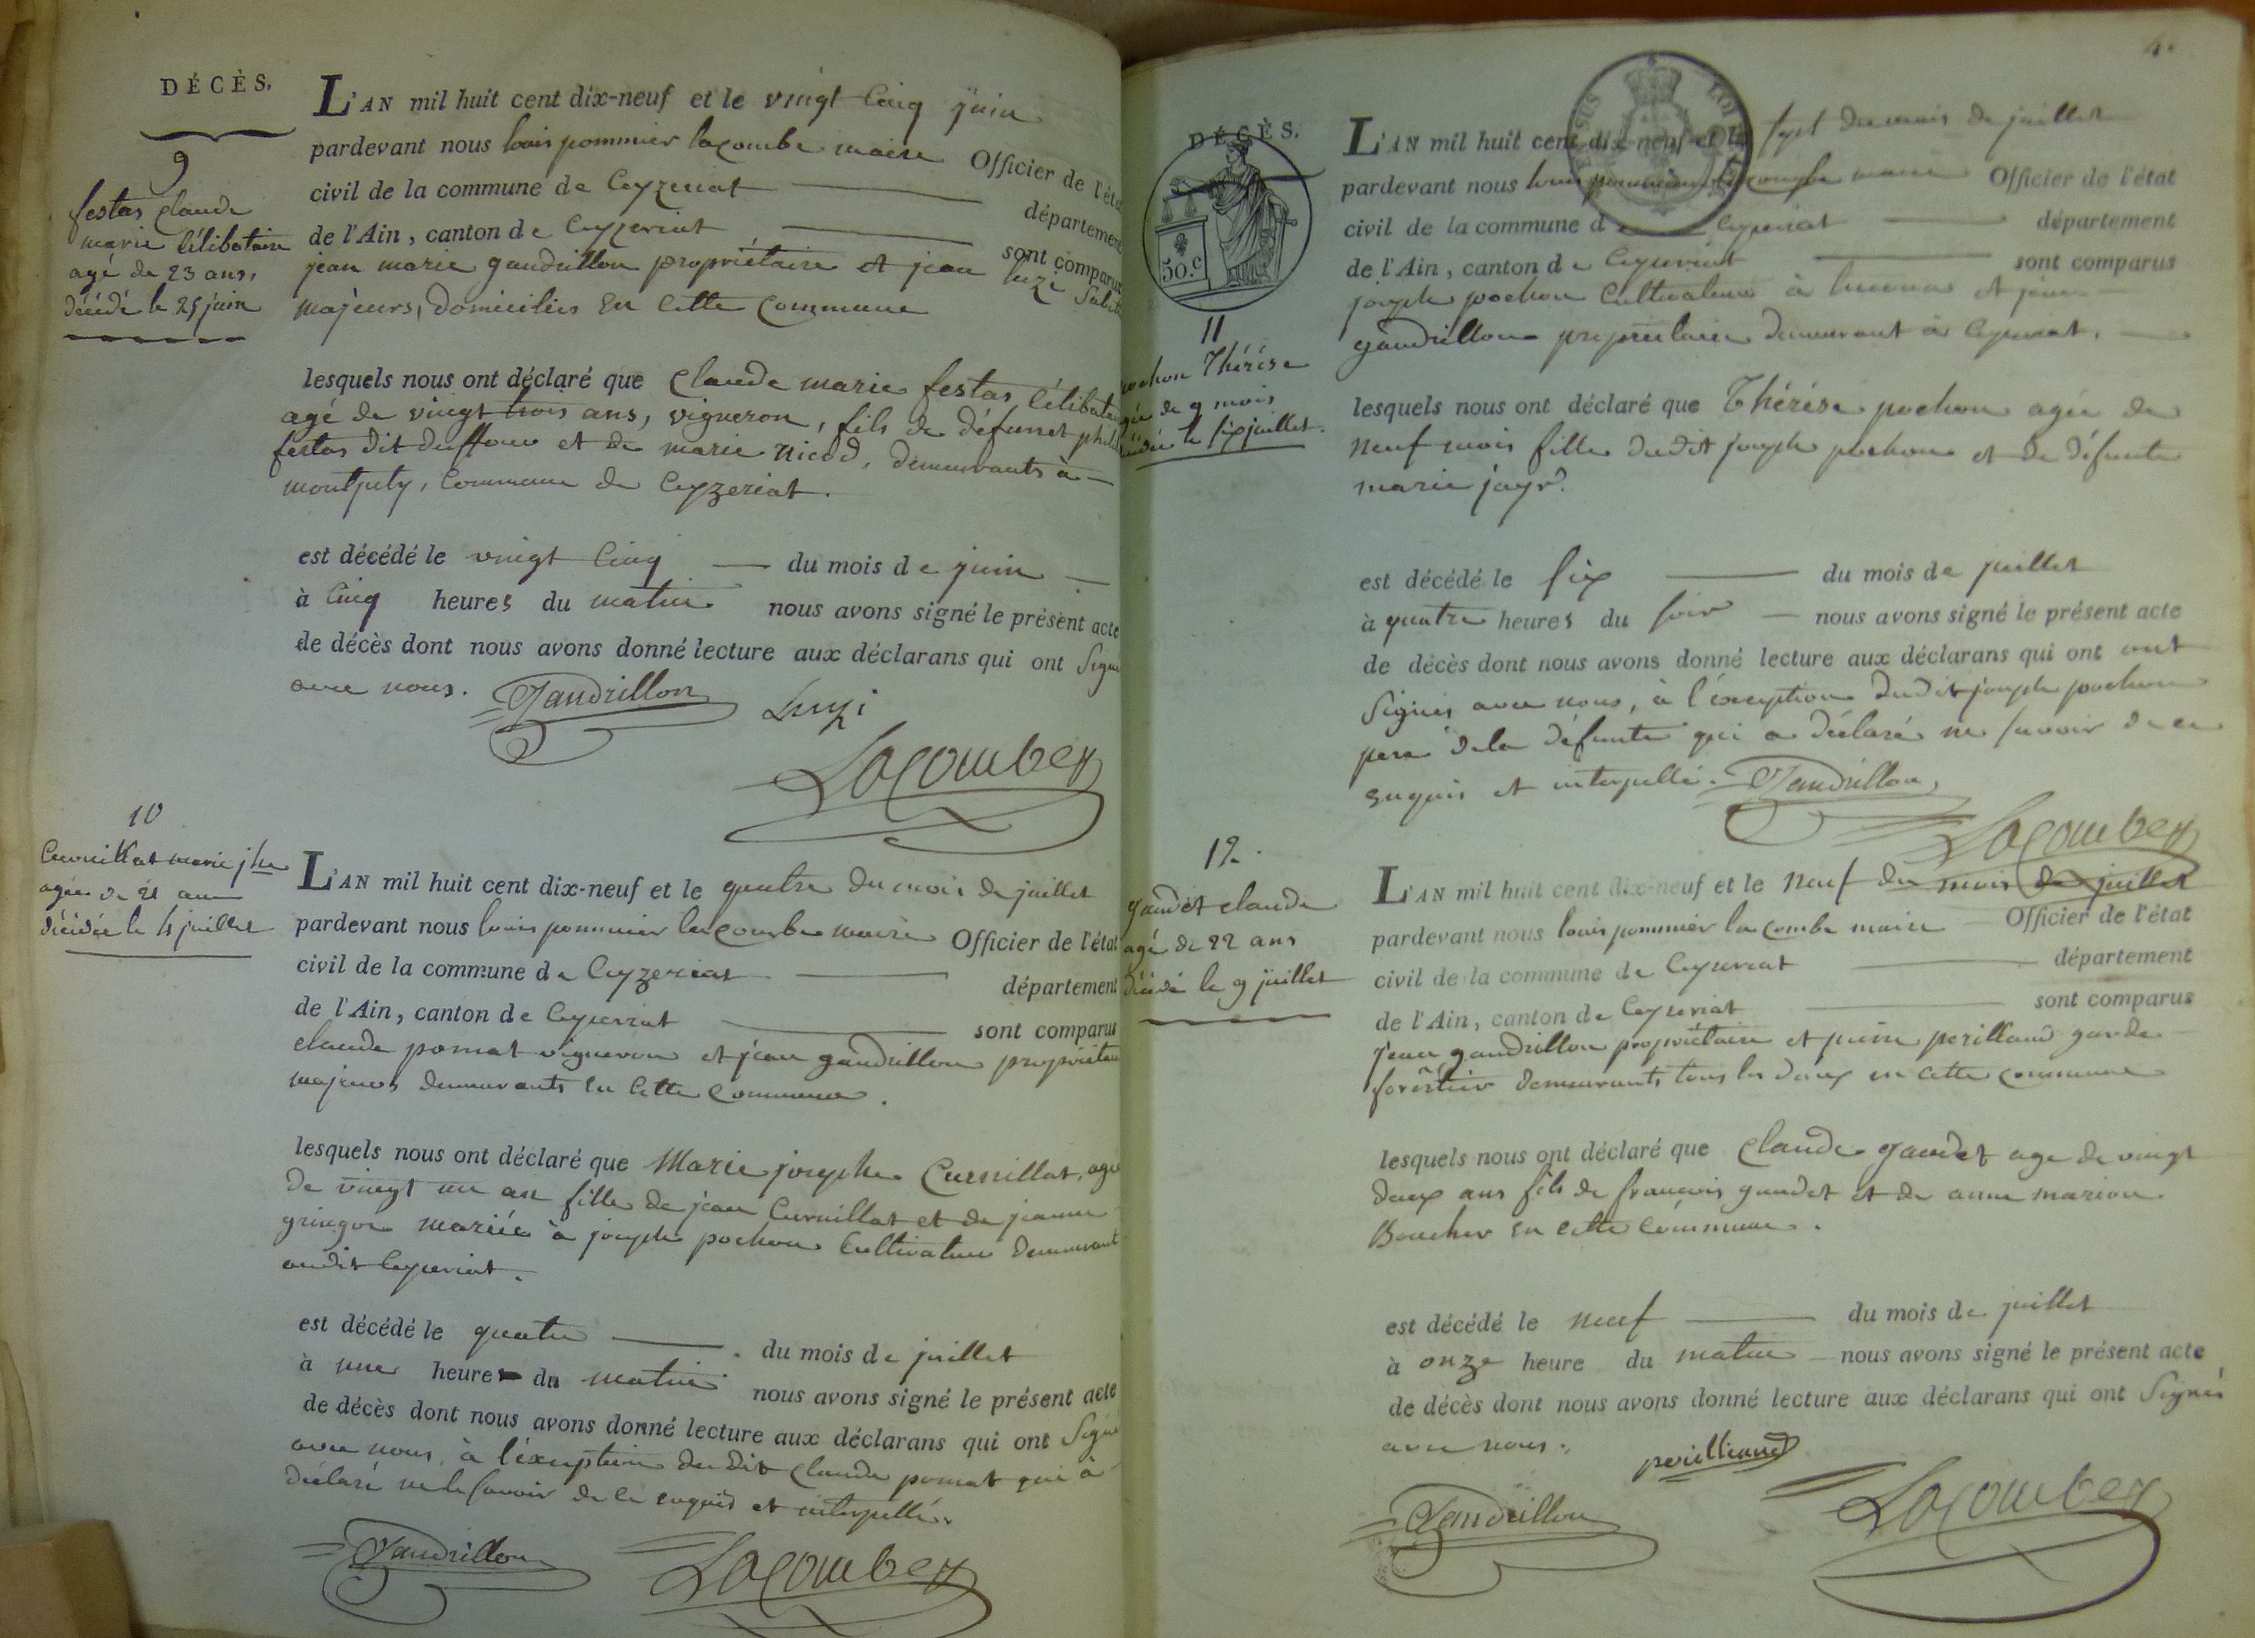 DÉCÈS.
9
festas claude
marie célibataire
agé de 23 ans,
décédé le 25 juin
L'AN mil huit cent dix-neuf et le vingt cinq juin
pardevant nous louis pommier lacombe maire Officier de l'éta
civil de la commune de Ceyzeriat département
de l'Ain, canton de Ceyzeriat sont comparus
jean marie gaudrillon propriétaire et jean luzi
majeurs, domiciliés en cette commune
lesquels nous ont déclaré que claude marie festas célibatai
agé de vingt trois ans, vigneron, fils de défunct phil
festas dit duffour et de marie nicod, demeurants à
montjuly, commune de Ceyzeriat.
est décédé le vingt cinq du mois de juin
à cinq heures du matin nous avons signé le présent acte
de décès dont nous avons donné lecture aux déclarans qui ont signé
avec nous. Gaudrillon Luzi
Lacombe
10
Curnillat marie jhe
agée de 21 ans
décédée le 4 juillet
L'AN mil huit cent dix-neuf et le quatre du mois de juillet
pardevant nous louis pommier lacombe maire Officier de l'état
civil de la commune de Ceyzeriat département
de l'Ain, canton de Ceyzeriat sont comparus
claude pomat vigneron et jean gaudrillon propriétai
majeurs demeurants en cette commune.
lesquels nous ont déclaré que Marie josephe Curnillat, agé
de vingt un an fille de jean Curnillat et de jeanne
gringoz mariée à joseph pochon cultivateur demeurant
audit Ceyzeriat.
est décédé le quatre du mois de juillet
à une heure du matin nous avons signé le présent acte
de décès dont nous avons donné lecture aux déclarans qui ont signé
avec nous, à l'éxception du dit claude pomat qui à
déclaré ne le savoir de ce enquis et interpellé.
Gaudrillon Lacombe
4.
DÉCÈS.
50.c
11
pochon Thérèse
agée de 9 mois
décédée le six juillet.
L'AN mil huit cent dix-neuf et le sept du mois de juillet
pardevant nous louis pommier lacombe maire Officier de l'état
civil de la commune d Ceyzeriat département
de l'Ain, canton de Ceyzeriat sont comparus
joseph pochon cultivateur à et jean
gaudrillon propriétaire demeurant à Ceyzeriat.
lesquels nous ont déclaré que Thérèse pochon agée de
neuf mois fille dudit joseph pochon et de défunte
marie jayr.
est décédé le six du mois de juillet
à quatre heures du soir nous avons signé le présent acte
de décès dont nous avons donné lecture aux déclarans qui ont ont
signés avec nous, à l'éxception dudit joseph pochon
pere de la défunte qui a déclaré ne savoir de ce
enquis et interpellé. Gaudrillon
Lacombe
12.
gaudet claude
agé de 22 ans
décédé le 9 juillet
L'AN mil huit cent dix-neuf et le neuf du mois de juillet
pardevant nous louis pommier lacombe maire Officier de l'état
civil de la commune de Ceyzeriat département
de l'Ain, canton de Ceyzeriat sont comparus
jean gaudrillon propriétaire et pierre perilliand garde
foréstier demeurants tous les deux en cette commune
lesquels nous ont déclaré que claude gaudet age de vingt
deux ans fils de francois gaudet et de anne marion
Boucher en cette commune.
est décédé le neuf du mois de juillet
à onze heure du matin nous avons signé le présent acte
de décès dont nous avons donné lecture aux déclarans qui ont signés
avec nous. perilliand
Gaudrillon Lacombe